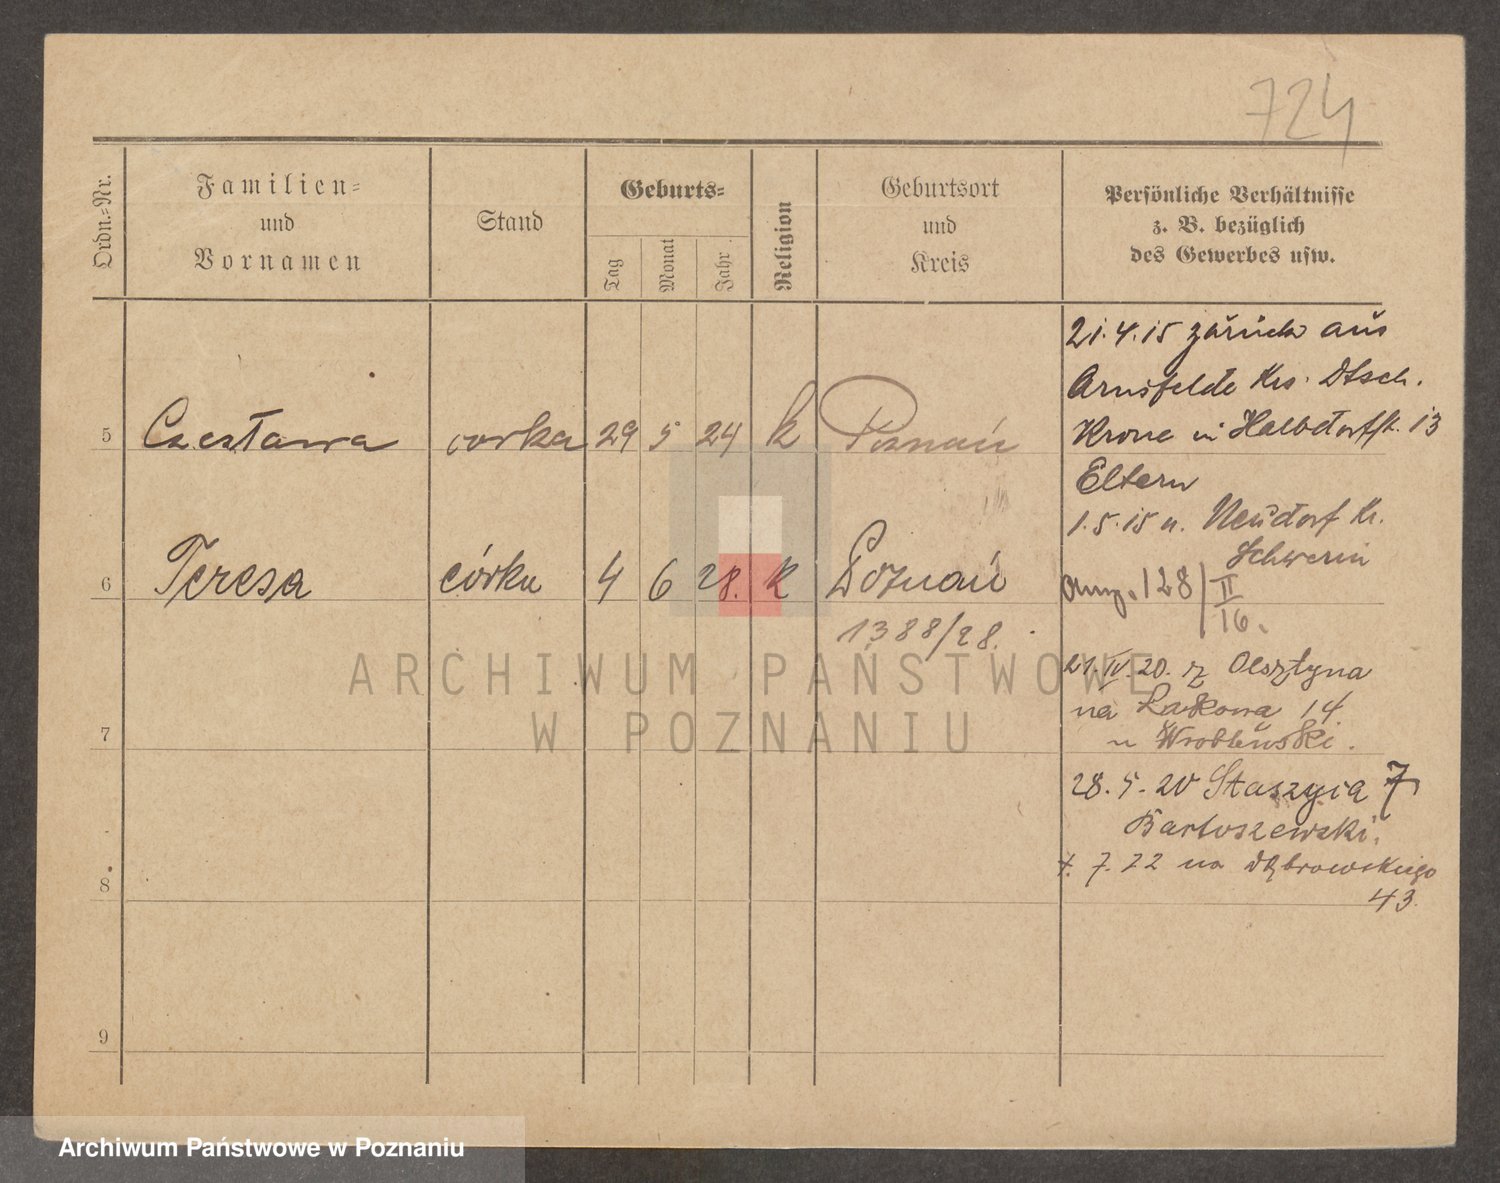 724
Ordn.-Nr.
Familien-
und
Vornamen
Stand
Geburts-
Tag
Monat
Jahr
Religion
Geburtsort
und
Kreis
Persönliche Verhältnisse
z. B. bezüglich
des Gewerbes usw.
5 Czesława corka 29 5 24 k Poznań
6 Teresa córka 4 6 28. k Poznań
1388/28.
7
8
9
21.4.15 zurück aus
Arnsfelde Krs. Dtsch.
Krone in Halbdorfstr. 13
Eltern
1.5.15 n. Neudorf Kr.
Schwerin
128/II
16.
21.IV.20. z Olsztyna
na Łąkową 14.
u Wroblewski.
28.5.20 Staszyca 7
Bartoszewski.
7.22 na Dąbrowskiego
43.
ARCHIWUM PAŃSTWOWE
W POZNANIU
Archiwum Państwowe w Poznaniu